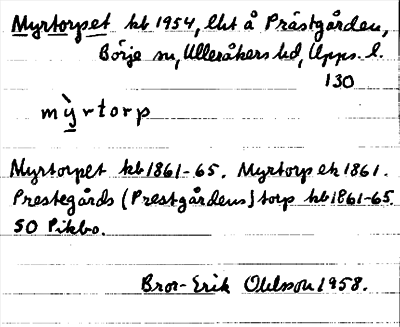 Myrtorpet kb 1954, lht å Prästgården,
Börje sn, Ulleråkers hd, Upps. l.
130
mỳrtorp
Myrtorpet kb 1861-65. Myrtorp ek 1861.
Prestegårds (Prestgårdens) torp kb 1861-65.
SO Pikbo.
Bror-Erik Ohlsson 1958.